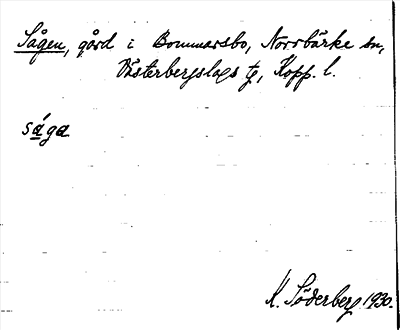 Sågen, gård i Bommarsbo, Norrbärke sn,
Västerbergslags tg, Kopp. l.
såga
K. Söderberg 1930.